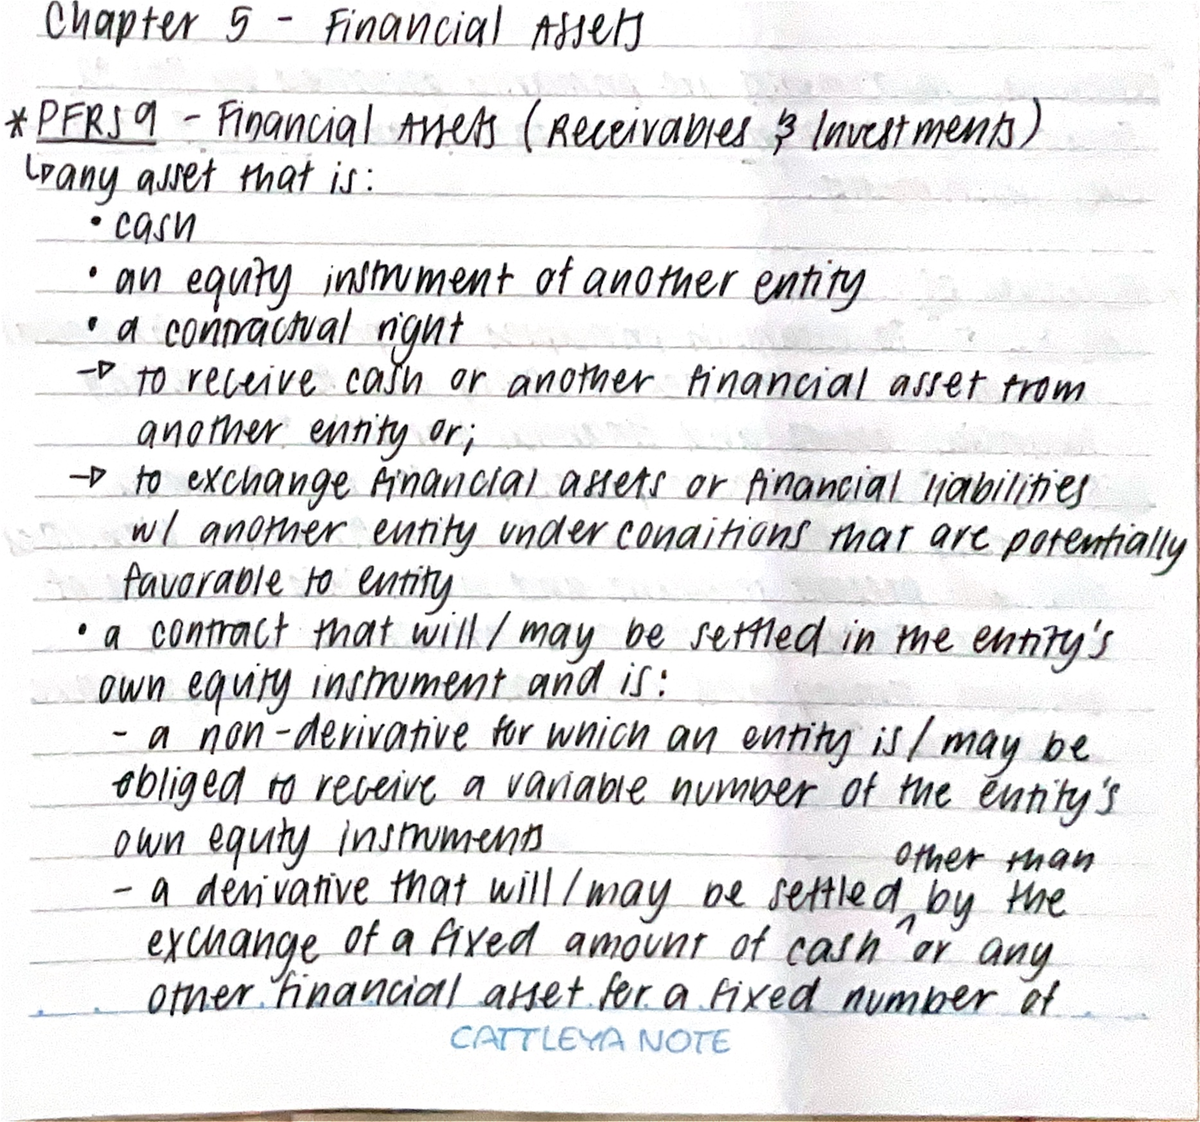 Chapter 5 - Financial Assets
* PFRS 9 - Financial Assets (Receivables & Investments)
↳ any asset that is:
• cash
• an equity instrument of another entity
• a contractual right
→ to receive cash or another financial asset from
another entity or;
→ to exchange financial assets or financial liabilities
w/ another entity under conditions that are potentially
favorable to entity
• a contract that will / may be settled in the entity's
own equity instrument and is:
- a non-derivative for which an entity is / may be
obliged to receive a variable number of the entity's
own equity instruments
other than
- a derivative that will / may be settled ^ by the
exchange of a fixed amount of cash or any
other financial asset for a fixed number of
CATTLEYA NOTE